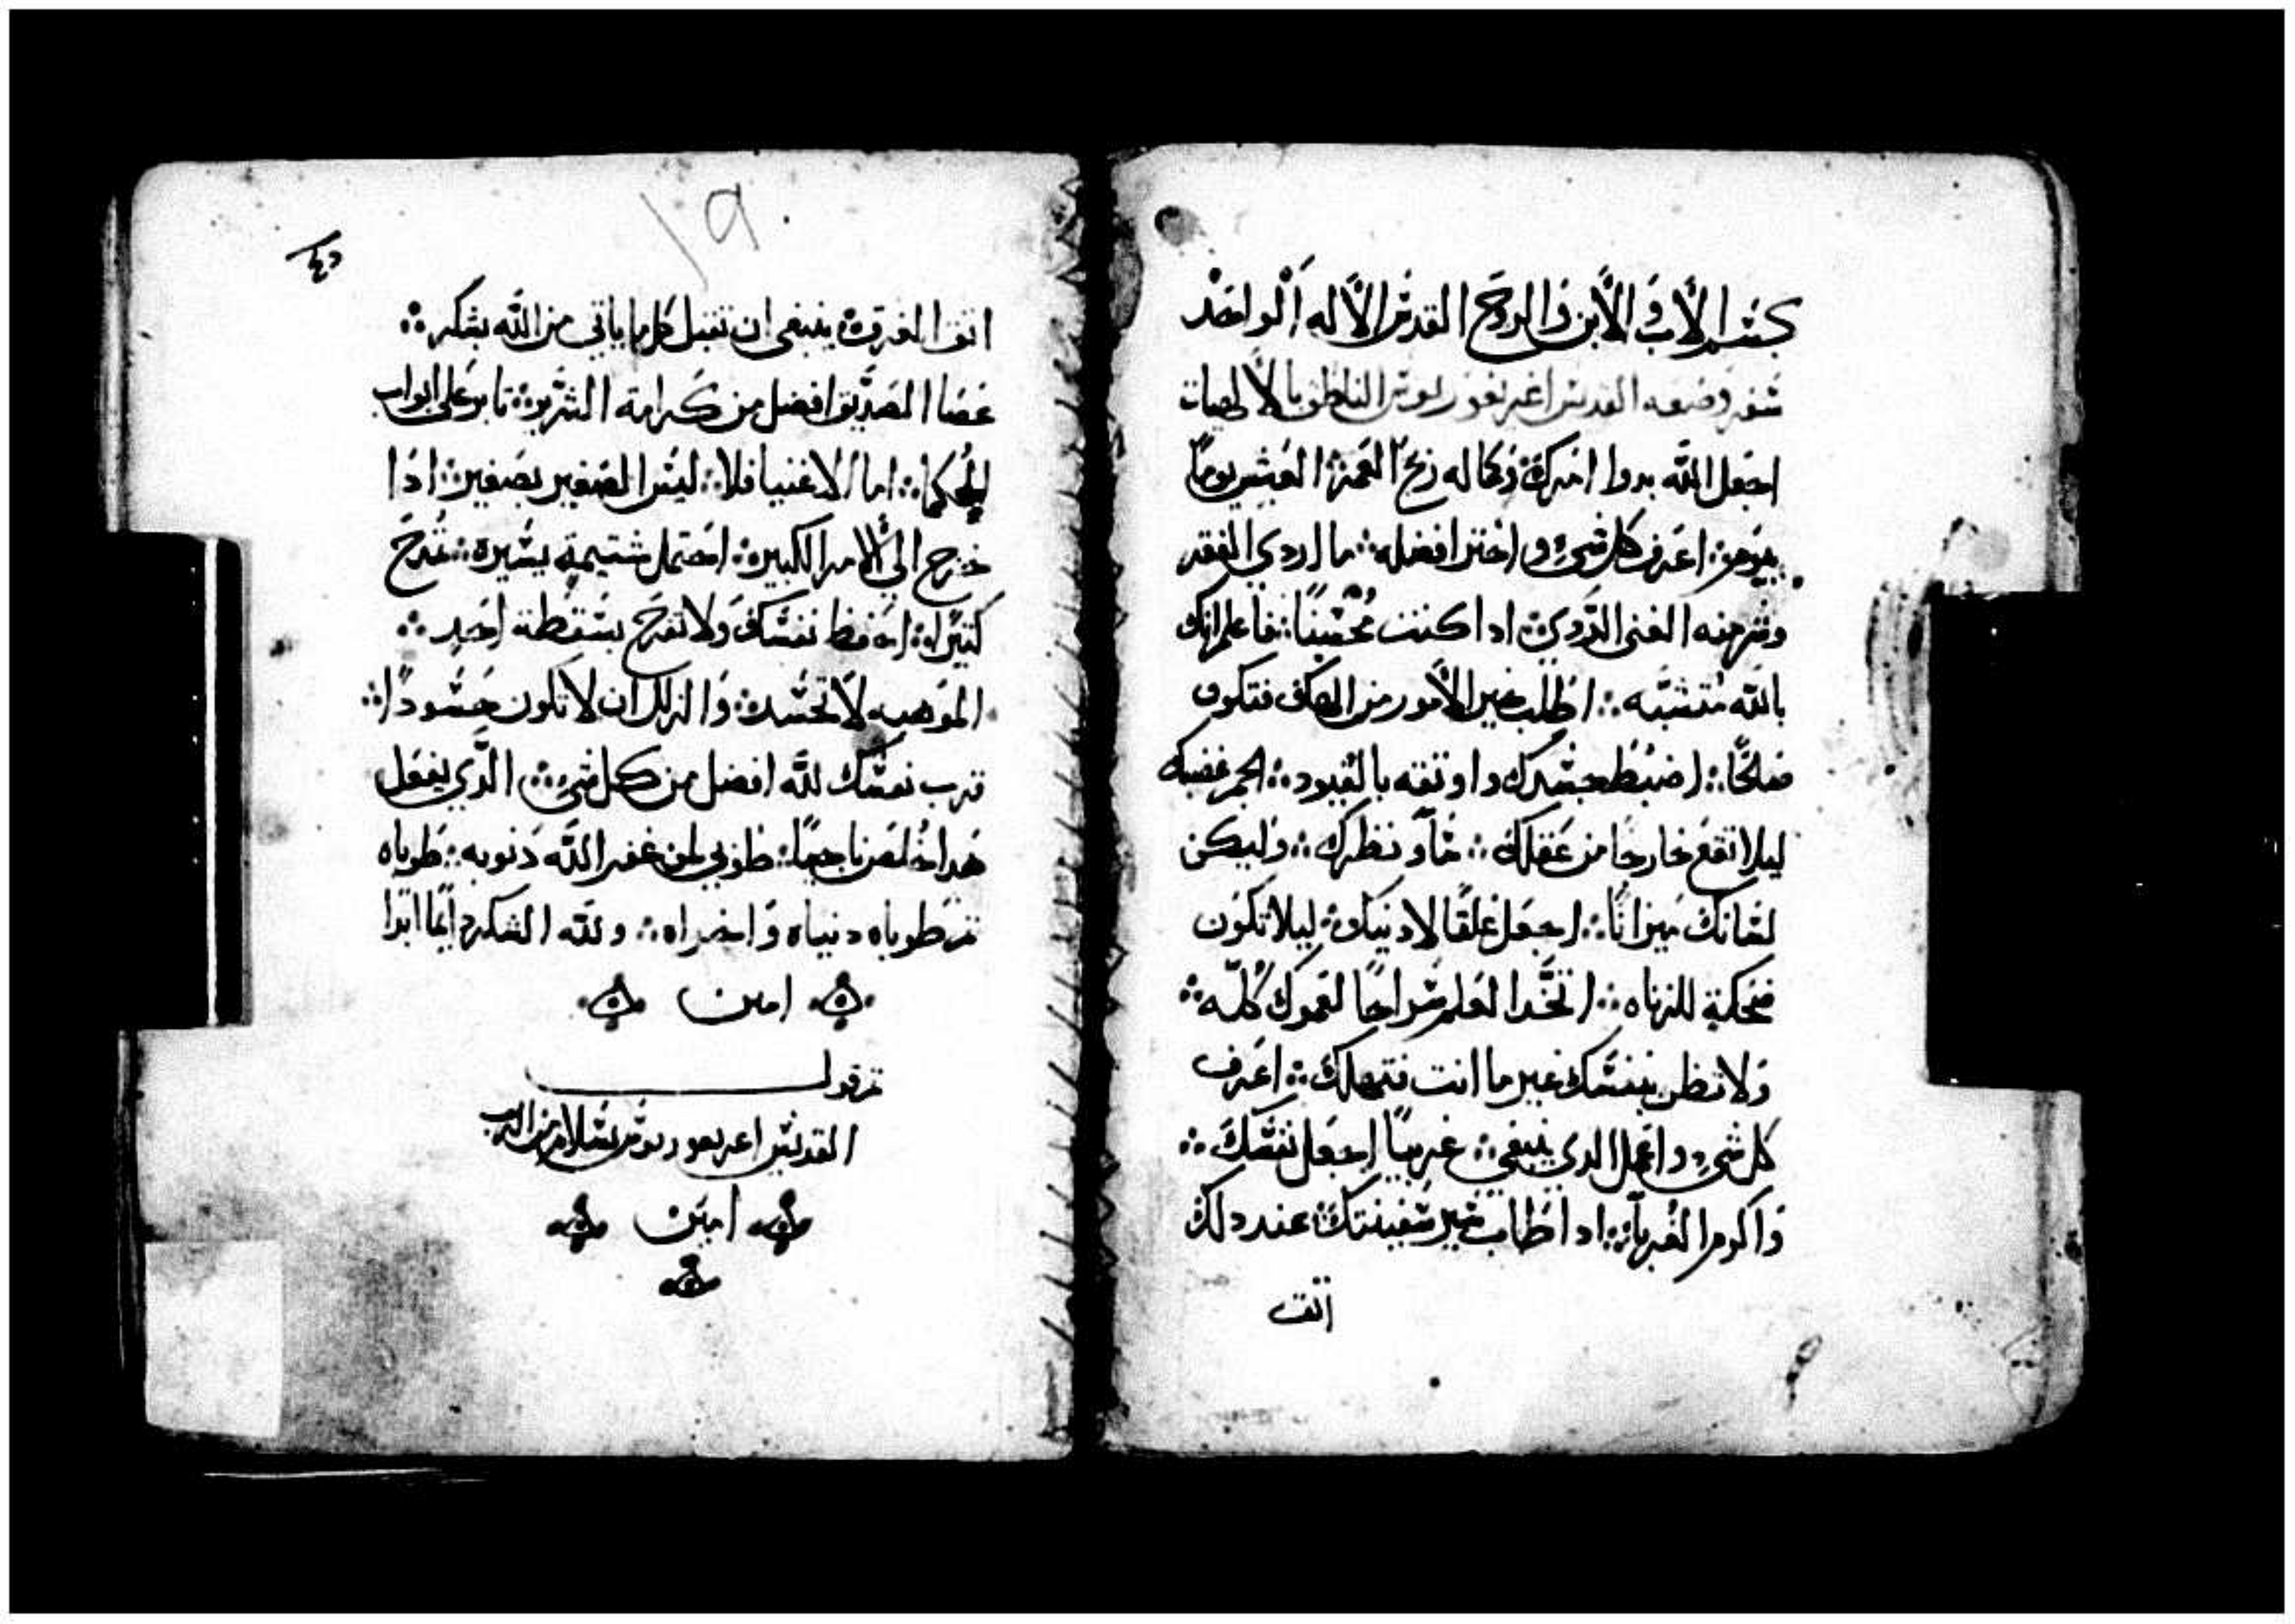 بسم الاب والابن والروح القدس الاله الواحد
شعر وضعه القديس اغريغوريوس الناطق بالالهيات
اجعل الله بدوا امرك وكماله ربح العمر العيش يوما
بيوم ⁘ اعرف كل شي واختر افضله ⁘ ما اردي الفقر
وشر منه الغنى الردي ⁘ ادا كنت محسنا ⁘ فاعلم انك
بالله متشبه ⁘ اطلب خير الامور من الهك فتكون
صالحا ⁘ اضبط جسدك واوتقه بالقيود ⁘ الجم غضبك
ليلا تقع خارجا من عقلك ⁘ ساو نظرك ⁘ وليكن
لسانك ميزانا ⁘ اجعل غلقا لادنيك ⁘ ليلا تكون
ضحكة للزناه ⁘ اتخد العلم سراجا لعمرك كله ⁘
ولا تظن بنفسك غير ما انت فتهلك ⁘ اعرف
كل شي واعمل الدي ينبغي ⁘ غريبا اجعل نفسك ⁘
واكرم الغربا ⁘ ادا طاب سير سفينتك عند دلك
اتق
١٩
اتق الغرق ⁘ ينبغي ان تقبل كل ما ياتي من الله بشكر ⁘
عصا الصديق افضل من كرامة الشرير ⁘ تابر على ابواب
الحكما ⁘ اما الاغنيا فلا ⁘ ليس الصغير بصغير ⁘ ادا
خرج الي الامر الكبير ⁘ احتمل شتيمة يسيرة ⁘ تمدح
كتيرا ⁘ احفظ نفسك ولا تفرح بسقطة احد ⁘
الموهبه لا تحسد ⁘ والزلل ان لا تكون حسودا ⁘
قرب نفسك لله افضل من كل شي ⁘ الدي يفعل
هدا خلص ناجيا ⁘ طوبي لمن غفر الله دنوبه ⁘ طوباه
تم طوباه دنياه واخراه ⁘ ولله الشكر دايما ابدا
امين
تم قول
القديس اغريغوريوس بسلام من الرب
امين